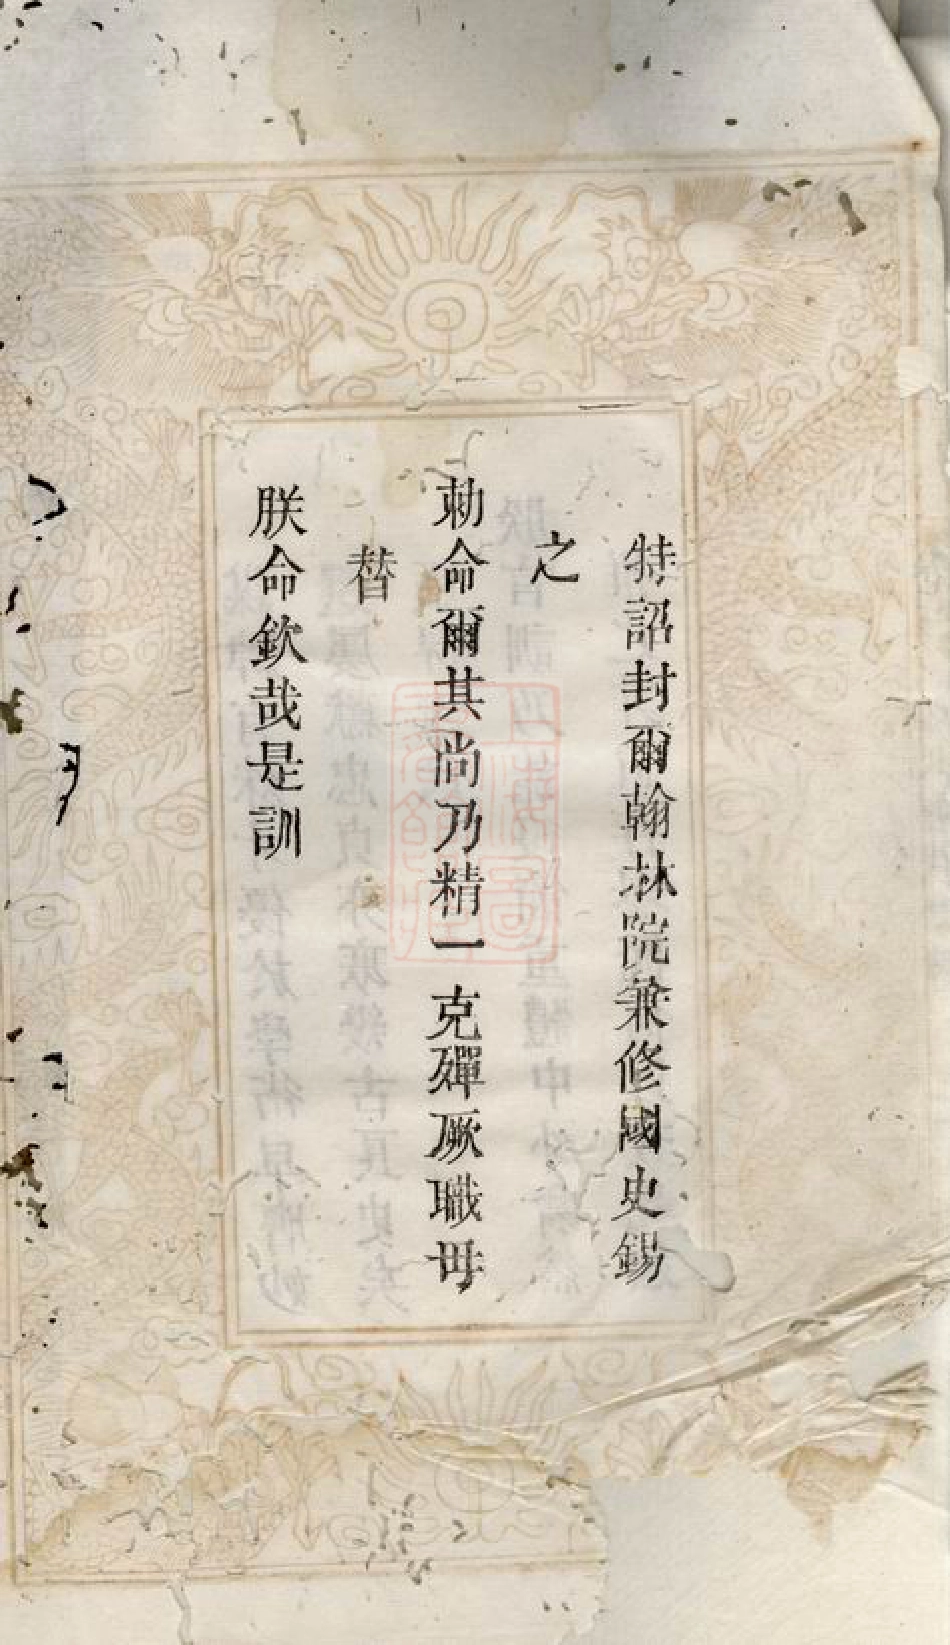 特詔封爾翰林院兼修國史錫
之
勅命爾其尚乃精一克殫厥職毋
替
朕命欽哉是訓